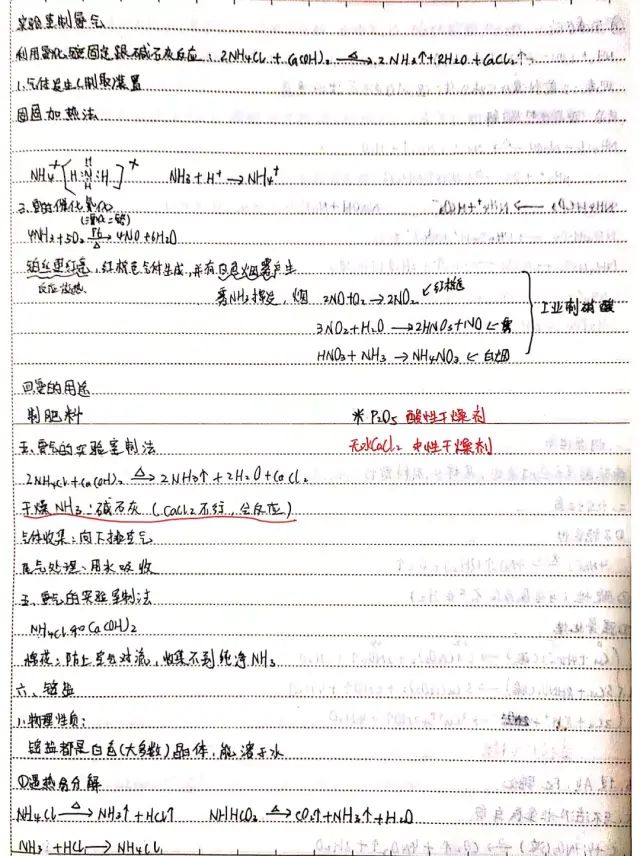 实验室制氨气
利用氯化铵固定跟碱石灰反应:2NH₄Cl + Ca(OH)₂ =△= 2NH₃↑+2H₂O + CaCl₂↑
1.气体发生(制取装置
固固加热法
NH₄⁺ [H:N:H]⁺ NH₃ + H⁺ → NH₄⁺
H
H
三.氨的催化氧化
4NH₃+5O₂ →△ 4NO+6H₂O
铂丝更红亮,红棕色气体生成,并有白色烟雾产生
反应放热
雾NH₃挥发,烟 2NO+O₂ → 2NO₂ ←红棕色
3NO₂+H₂O → 2HNO₃+NO ←雾
HNO₃+NH₃ → NH₄NO₃ ←白烟
工业制硝酸
四.氨的用途
制肥料 ※ P₂O₅ 酸性干燥剂
五.氨气的实验室制法 无水CaCl₂ 中性干燥剂
2NH₄Cl+Ca(OH)₂ △→ 2NH₃↑+2H₂O+CaCl₂
干燥NH₃:碱石灰(CaCl₂不行,会反应)
气体收集:向下排空气
尾气处理:用水吸收
五、氨气的实验室制法
NH₄Cl和Ca(OH)₂
棉花:防止空气对流,收集不到纯净NH₃
六、铵盐
1.物理性质:
铵盐都是白色(大多数)晶体,能溶于水
①遇热会分解
NH₄Cl △→ NH₃↑+HCl↑ NHHCO₃ △→ CO₂↑+NH₃↑+H₂O
NH₃+HCl → NH₄Cl